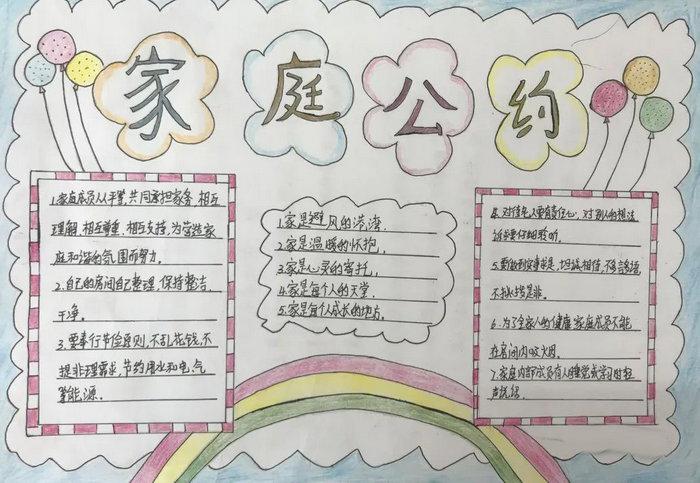 家庭公约
1.家庭成员人人平等,共同承担家务,相互
理解,相互尊重,相互支持,为营造家
庭和谐的氛围而努力.
2.自己的房间自己整理,保持整洁,
干净.
3.要奉行节俭原则,不乱花钱,不
提非理需求,节约用水和电,气
等能源.
1.家是避风的港湾.
2.家是温暖的怀抱,
3.家是心灵的寄托,
4.家是每个人的天堂.
5.家是每个人成长的地方.
4.对待家人要有责任心,对别人的想法
要仔细聆听.
5.要做到实事求是,坦诚相待,不
是非.
6.为了全家人的健康,家庭成员不能
在房间内吸烟.
7.家庭内部成员有人睡觉或学习时轻
声